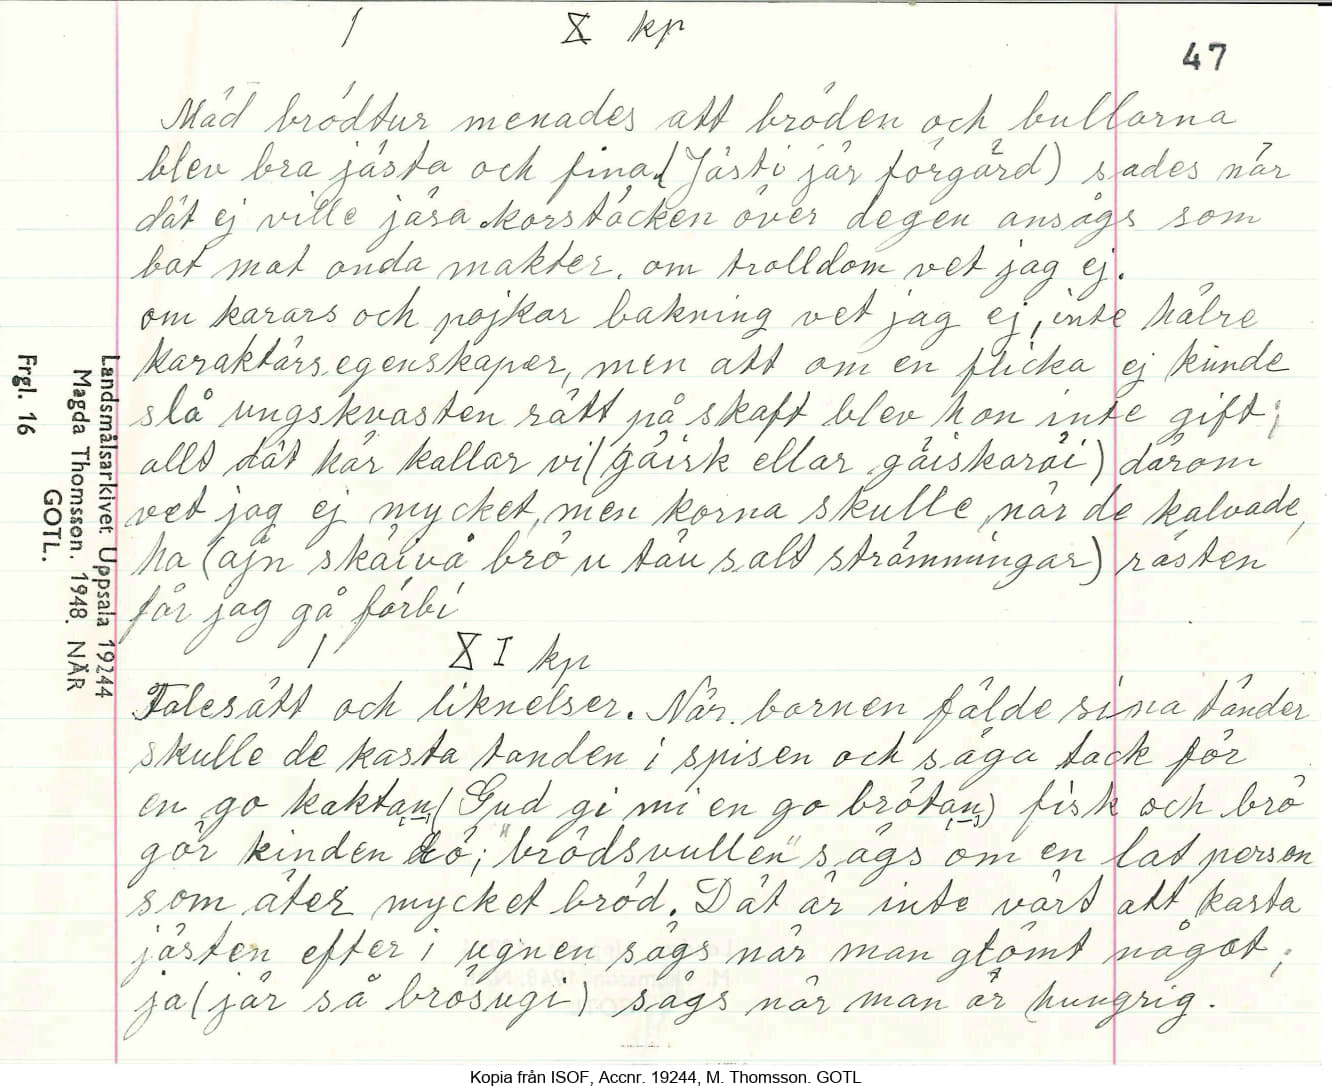 1 X kp
47
Mäd brödtur menades att bröden och bullarna
blev bra jästa och fina. (Jästi jär förgärd) sades när
dät ej ville jäsa korstäcken över degen ansågs som
bot mot onda makter. om trolldom vet jag ej.
om karars och pojkar bakning vet jag ej, inte hälre
karaktärsegenskaper, men att om en flicka ej kunde
slå ungskvasten rätt på skaft blev hon inte gift;
allt dät här kallar vi (gäisk ellar gäiskaräi) därom
vet jag ej mycket, men korna skulle när de kalvade,
ha (ajn skäivå brö u täu salt strömmingar) rästen
får jag gå förbi
1 XI kp
Talesätt och liknelser. När barnen fälde sina tänder
skulle de kasta tanden i spisen och säga tack för
en go kaktan (Gud gi mi en go brötan) fisk och brö
gör kinden rö; "brödsvullen" sägs om en lat person
som äter mycket bröd. Dät är inte värt att kasta
jästen efter i ugnen sägs när man glömt något;
ja (jär så brösugi) sägs när man är hungrig.
Landsmålsarkivet Uppsala 19244
Magda Thomsson. 1948. NÄR
GOTL.
Frgl. 16
Kopia från ISOF, Accnr. 19244, M. Thomsson. GOTL